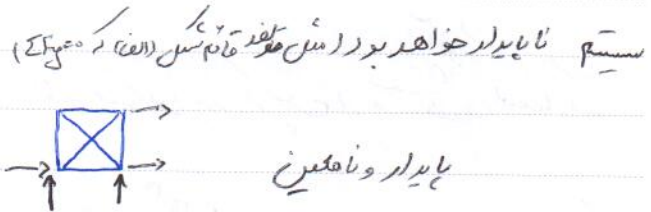 سیستم ناپایدار خواهد بود (مثل مؤلفه قائم شکل (الف) که ΣFy=0)
پایدار و نامعین